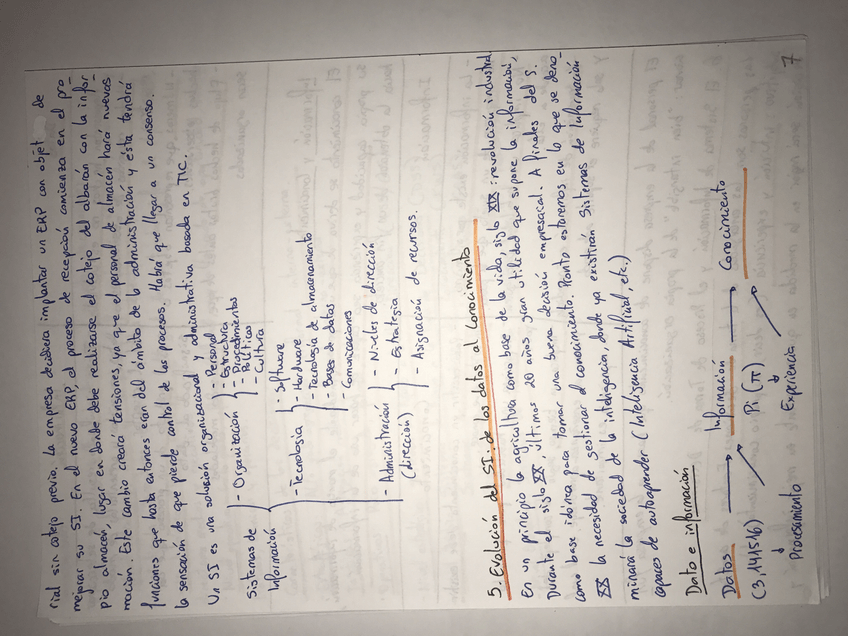 rial sin cotejo previo. La empresa decidiera implantar un ERP con objet de
mejorar su SI. En el nuevo ERP, el proceso de recepción comienza en el pro
pio almacén, lugar en donde debe realizarse el cotejo del albarán con la infor-
mación. Este cambio creará tensiones, ya que el personal de almacén hará nuevas
funciones que hasta entonces eran del ámbito de la administración y ésta tendrá
la sensación de que pierde control de los procesos. Habrá que llegar a un consenso.
Un SI es una solución organizacional y administrativa basada en TIC.
Sistemas de
Información
- Organización
- Personal
- Estructura
- Procedimientos
- Políticas
- Cultura
- Tecnología
- Software
- Hardware
- Tecnología de almacenamiento
- Bases de datos
- Comunicaciones
- Administración
(dirección)
- Niveles de dirección
- Estrategia
- Asignación de recursos.
5. Evolución del SI: de los datos al conocimiento
En un principio la agricultura como base de la vida, siglo XIX: revolución industrial
Durante el siglo XX, últimos 20 años gran utilidad que supone la información,
como base idónea para tomar una buena decisión empresarial. A finales del S.
XX la necesidad de gestionar el conocimiento. Pronto estaremos en lo que se deno-
minará la sociedad de la inteligencia, donde ya existirán Sistemas de Información
capaces de autoaprender (Inteligencia Artificial, etc.)
Dato e información
Datos → Información → Conocimiento
(3,141516) Pi (π)
Procesamiento Experiencia
7